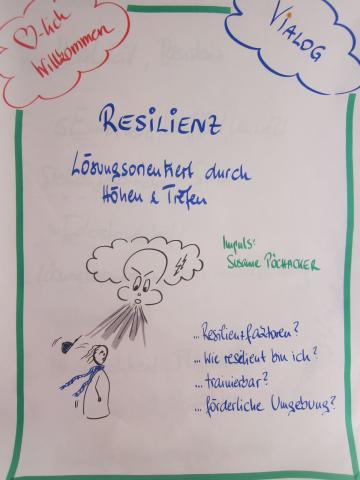 ♡-lich
Willkommen
VIALOG
RESILIENZ
Lösungsorientiert durch
Höhen & Tiefen
Impuls:
Susanne PÖCHACKER
...Resilienzfaktoren?
...Wie resilient bin ich?
...trainierbar?
...förderliche Umgebung?